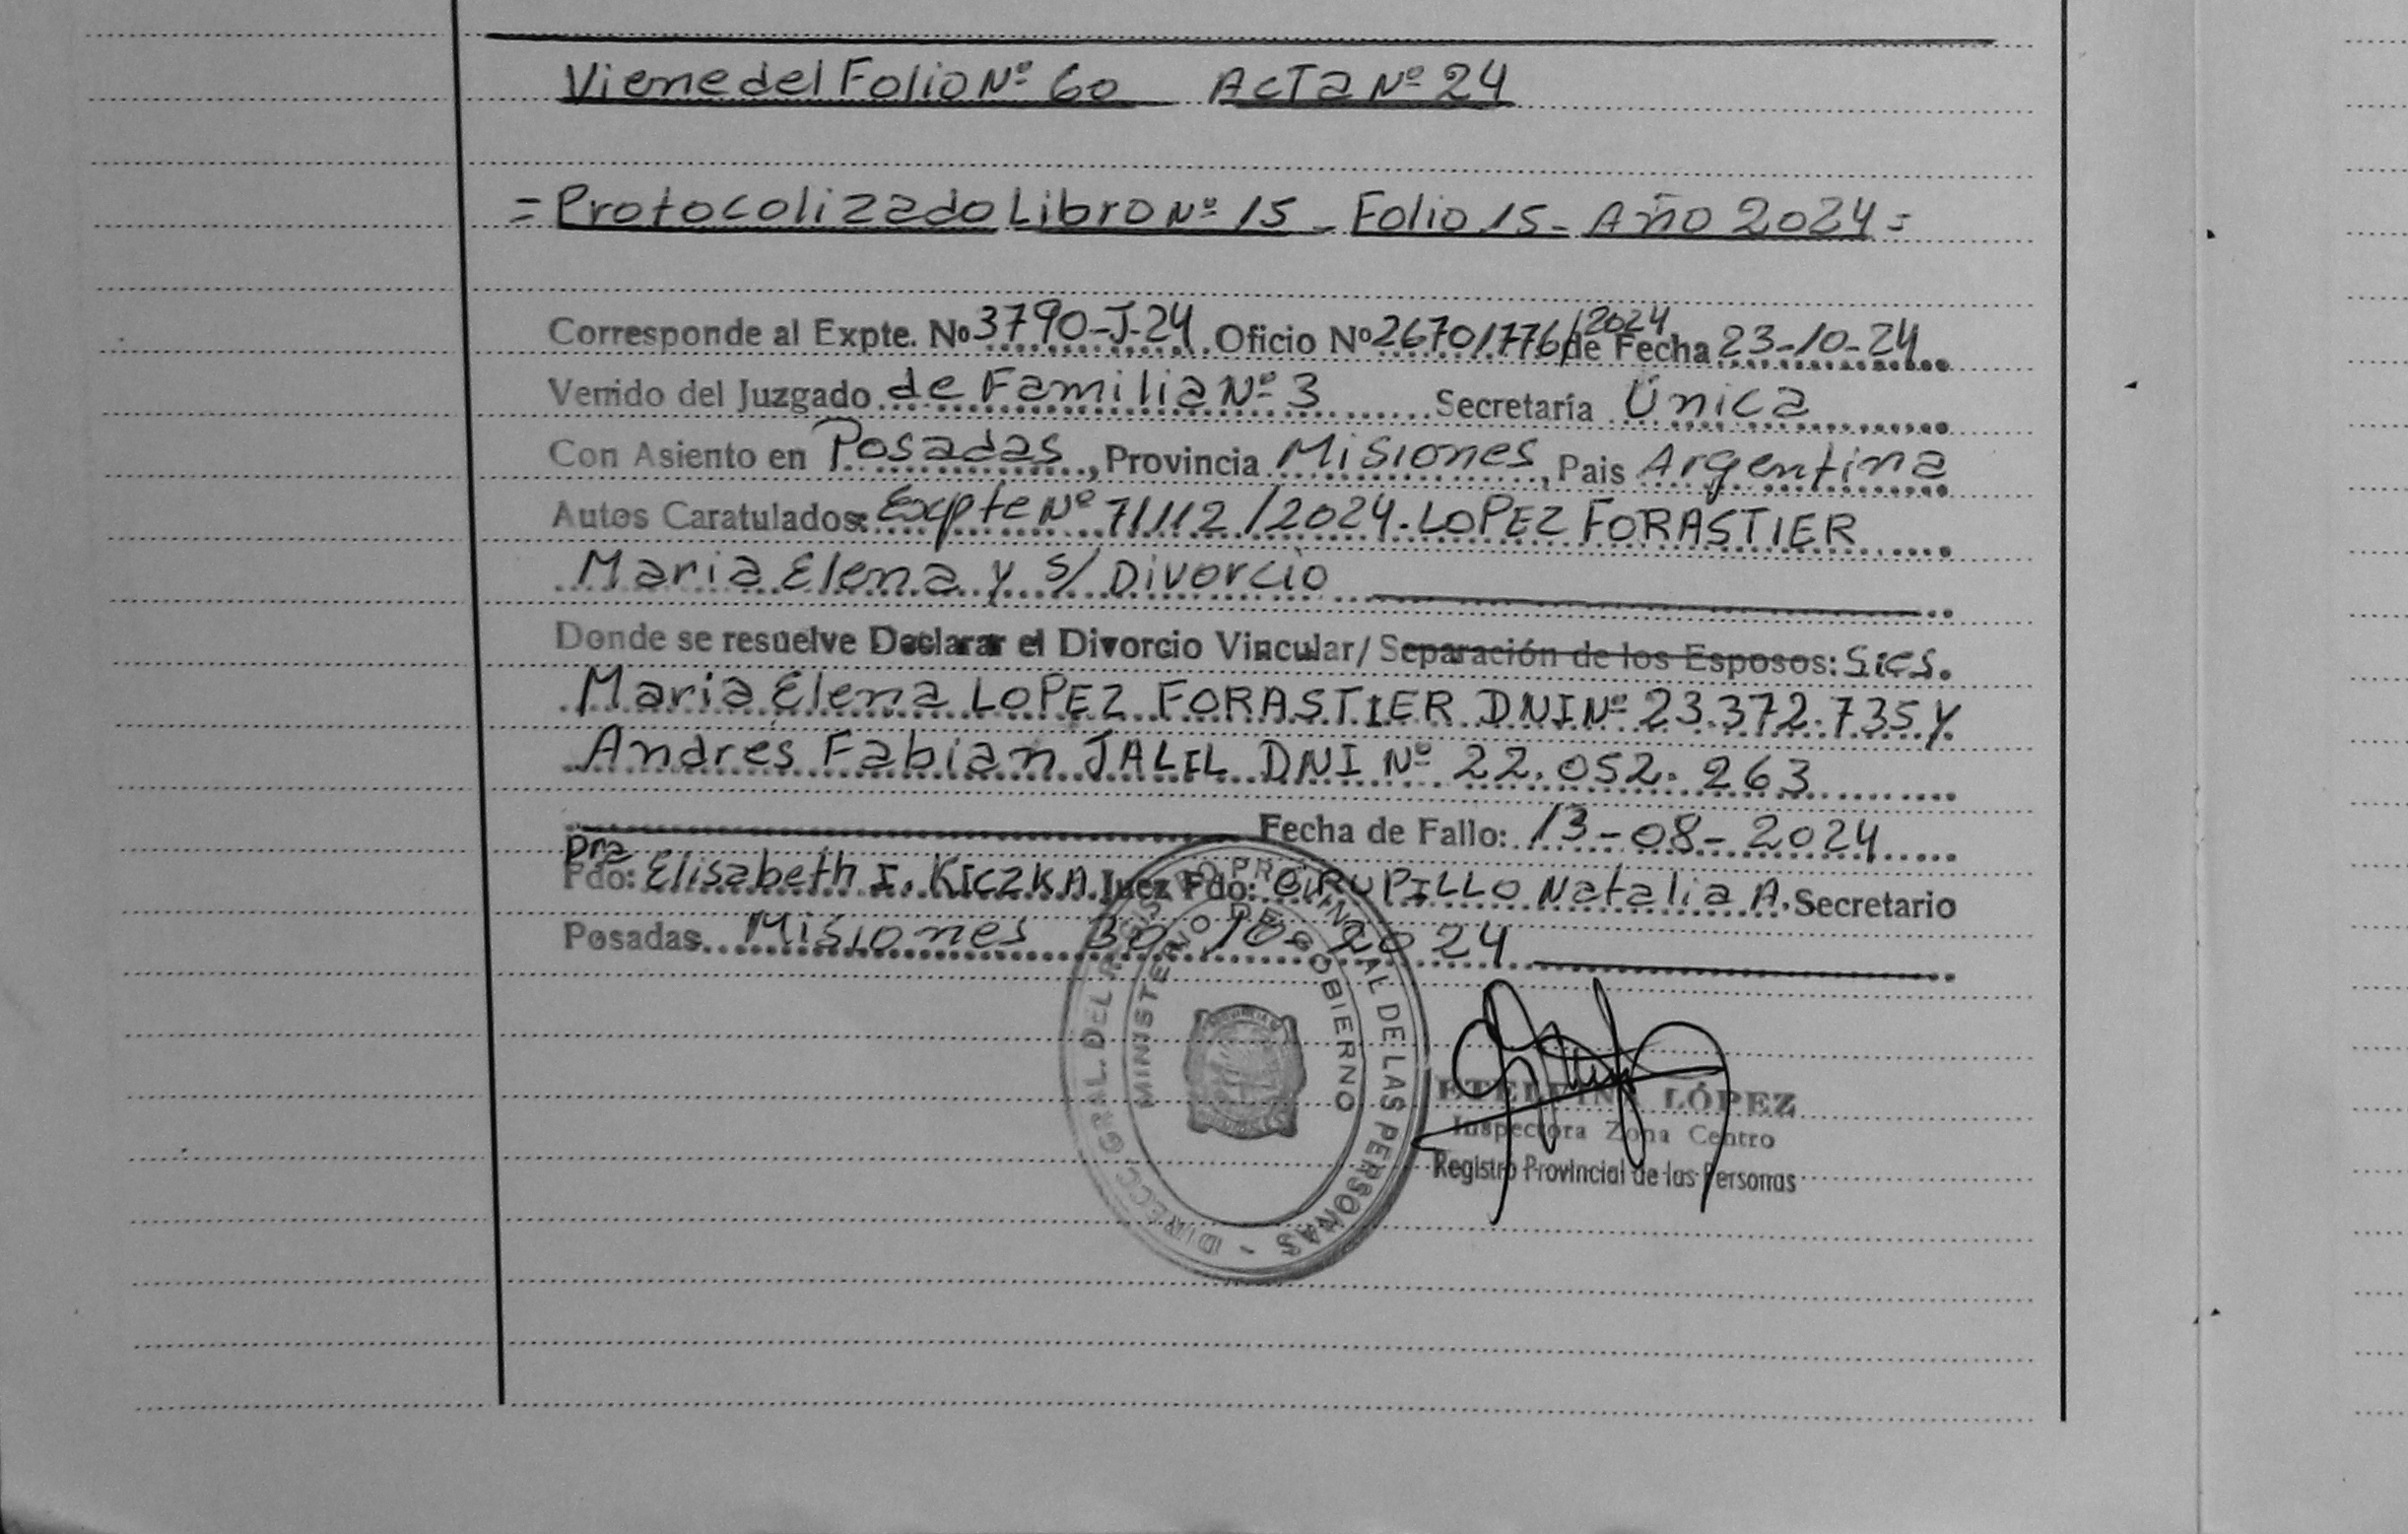 Viene del Folio Nº 60 Acta Nº 24
= Protocolizado Libro Nº 15 - Folio 15 - Año 2024 =
Corresponde al Expte. Nº 3790-J-24 Oficio Nº 26701776/2024 de Fecha 23-10-24
Venido del Juzgado de Familia Nº 3 Secretaría Única
Con Asiento en Posadas, Provincia Misiones, Pais Argentina
Autos Caratulados: Expte Nº 71112/2024. LOPEZ FORASTIER
Maria Elena y s/ Divorcio
Donde se resuelve Declarar el Divorcio Vincular/ Separación de los Esposos:
Maria Elena LOPEZ FORASTIER DNI Nº 23.372.735 y
Andres Fabian JALIL DNI Nº 22.052.263
Fecha de Fallo: 13-08-2024
Dra
Fdo: Elisabeth I. KICZKA Juez Fdo: Natalia A. Secretario
Posadas Misiones 30-10-2024
DIRECC. GRAL. DEL REGISTRO PROVINCIAL DE LAS PERSONAS -
MINISTERIO DE GOBIERNO
ETELVINA LÓPEZ
Inspectora Zona Centro
Registro Provincial de las Personas